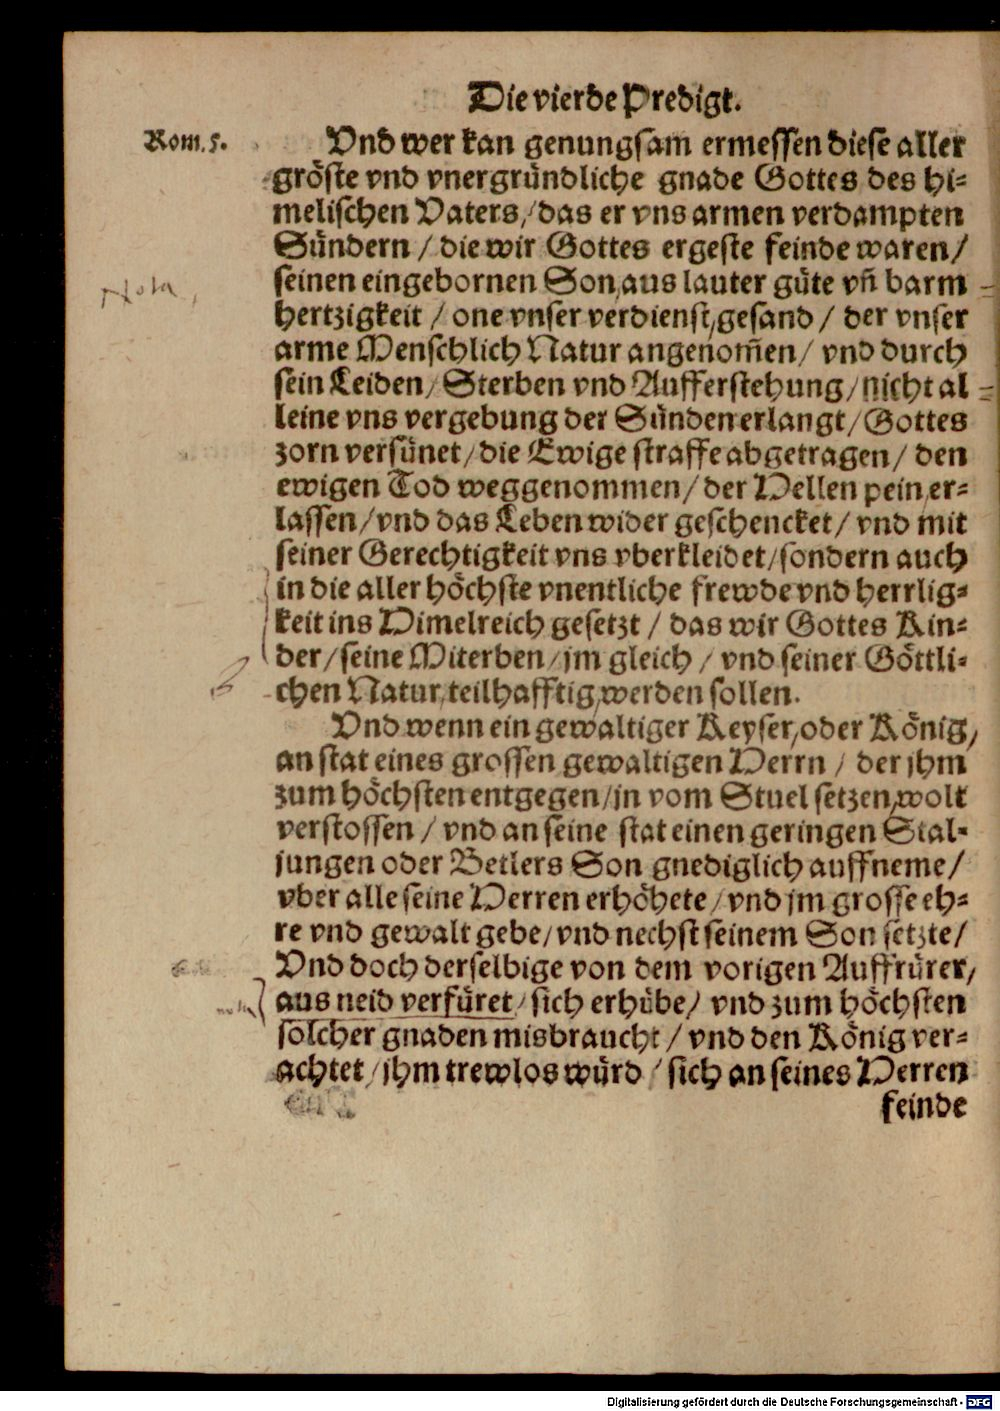 Die vierde Predigt.
Rom. 5.
Vnd wer kan genungsam ermessen diese aller
gröste vnd vnergründliche gnade Gottes des hi-
melischen Vaters / das er vns armen verdampten
Sündern / die wir Gottes ergeste feinde waren /
seinen eingebornen Son, aus lauter güte vñ barm
Nota
hertzigkeit / one vnser verdienst, gesand / der vnser
arme Menschlich Natur angenom̃en / vnd durch
sein Leiden / Sterben vnd Aufferstehung / nicht al
leine vns vergebung der Sünden erlangt / Gottes
zorn versünet / die Ewige straffe abgetragen / den
ewigen Tod weggenommen / der Hellen pein, er-
lassen / vnd das Leben wider geschencket / vnd mit
seiner Gerechtigkeit vns vberkleidet / sondern auch
in die aller höchste vnentliche frewde vnd herrlig-
keit ins Himelreich gesetzt / das wir Gottes Kin-
der / seine Miterben / jm gleich / vnd seiner Göttli-
chen Natur, teilhafftig, werden sollen.
Vnd wenn ein gewaltiger Keyser, oder König,
an stat eines grossen gewaltigen Herrn / der jhm
zum höchsten entgegen / jn vom Stuel setzen, wolt
verstossen / vnd an seine stat einen geringen Stal-
jungen oder Betlers Son gnediglich auffneme /
vber alle seine Herren erhöhete / vnd jm grosse eh-
re vnd gewalt gebe / vnd nechst seinem Son setzte /
Vnd doch derselbige von dem vorigen Auffrürer,
aus neid verfüret / sich erhübe / vnd zum höchsten
solcher gnaden misbraucht / vnd den König ver-
achtet / jhm trewlos würd / sich an seines Herren
feinde
Digitalisierung gefördert durch die Deutsche Forschungsgemeinschaft - DFG